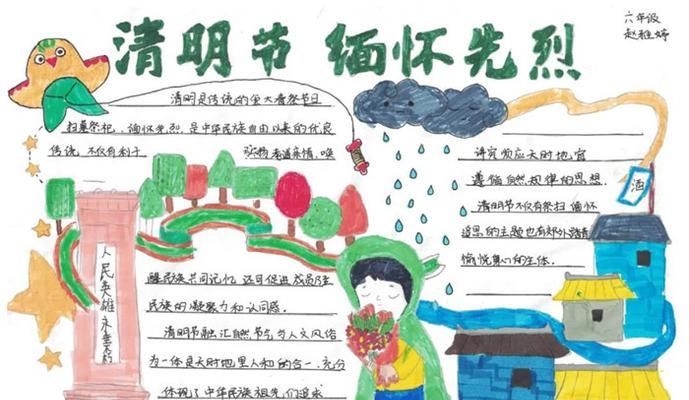 清明节 缅怀先烈
六年级
赵雅婷
清明是传统的重大春祭节日
扫墓祭祀、缅怀先烈，是中华民族自古以来的优良
传统，不仅有利于
弘扬孝道亲情、唤
醒民族共同记忆 还可促进成员乃至
民族的凝聚力和认同感.
清明节融汇自然节气与人文风俗
为一体是天时地里人和的合一，充分
体现了中华民族祖先们追求
讲究顺应天时地宜
遵循自然规律的思想.
清明节不仅有祭扫 缅怀
追思的主题也有郊外踏青
愉悦身心的主体.
酒
人民英雄永垂